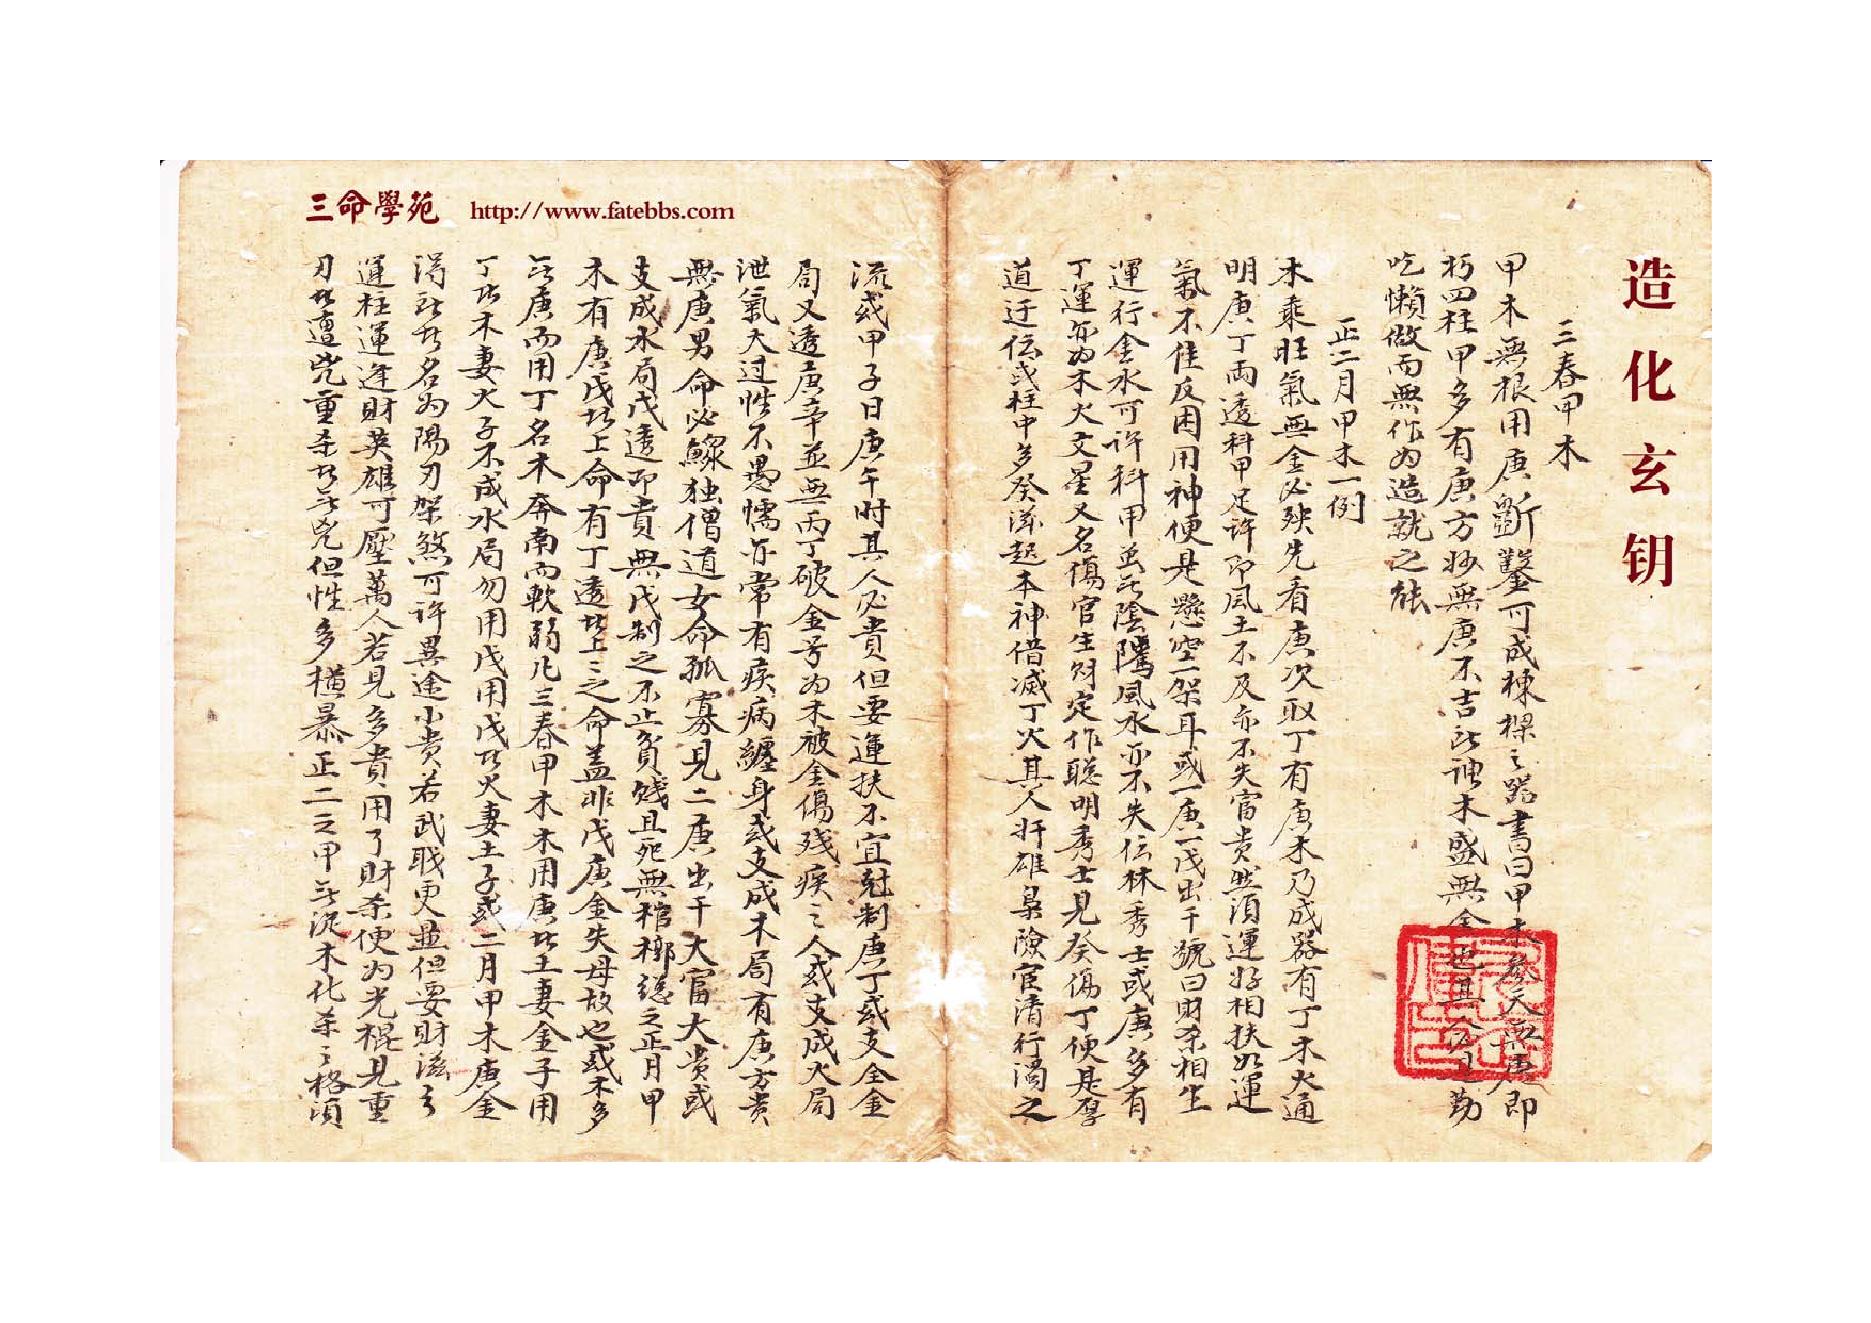 造化玄钥
三春甲木
甲木無根用庚斲鑿可成棟樑之器書曰甲木參天無庚即
朽四柱甲多有庚方妙無庚不吉此謂木盛無金也其人只勤
吃懶做而無作为造就之能
正二月甲木一例
木乘旺氣無金必殃先看庚次取丁有庚木乃成器有丁木火通
明庚丁兩透科甲足許即風土不及亦不失富貴然須運好相扶如運
氣不佳反困用神便是懸空一架耳或一庚一戊出干號曰財杀相生
運行金水可許科甲虽無陰隲風水亦不失伝林秀士或庚多有
丁運亦为木火文星又名傷官生財定作聪明秀士見癸傷丁便是厚
道迂伝或柱中多癸滋起本神借滅丁火其人奸雄梟險宦清行濁之
流或甲子日庚午时其人必貴但要運扶不宜尅制庚丁或支全金
局又透庚辛並無丙丁破金号为木被金傷残疾之人或支成火局
泄氣大过性不愚懦亦常有疾病纏身或支成木局有庚方貴
無庚男命必鰥独僧道女命孤寡見二庚出干大富大貴或
支成水局戊透即貴無戊制之不止貧賤且死無棺槨総之正月甲
木有庚戊此上命有丁透此上上之命盖非戊庚金失母故也或木多
無庚而用丁名木奔南而軟弱凡三春甲木木用庚此土妻金子用
丁此木妻火子不成水局勿用戊用戊此火妻土子或二月甲木庚金
得此此名为陽刃架煞可许異途小貴若武职更並但要財滋
運柱運逢財英雄可壓萬人若見多貴用了財杀便为光棍見重
刃此遭凶重杀此無凶但性多橫暴正二之甲無從木化杀之格須
三命學苑 http://www.fatebbs.com